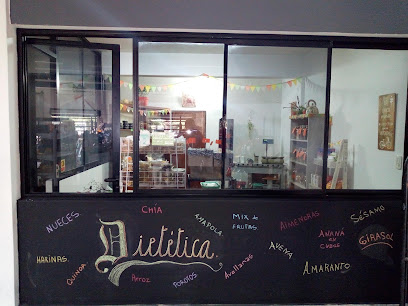 NUECES
CHÍA
AMAPOLA
MIX de
FRUTAS
ALMENDRAS
SÉSAMO
HARINAS
QUINOA
Dietética.
ARROZ
POROTOS
Avellanas
AVENA
ANANÁ
EN
CUBOS
GIRASOL
AMARANTO